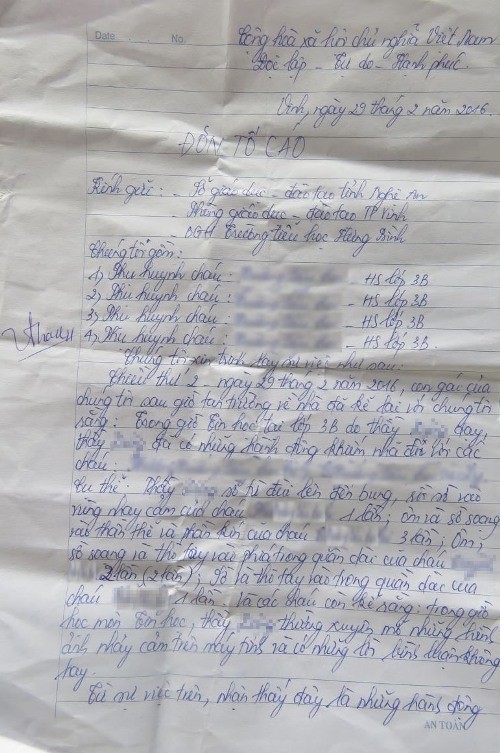 Date . . No.
Cộng hoà xã hội chủ nghĩa Việt Nam
Độc lập - Tự do - Hạnh phúc.
Vinh, ngày 29 tháng 2 năm 2016.
ĐƠN TỐ CÁO
Kính gửi: - Sở giáo dục - đào tạo tỉnh Nghệ An
- Phòng giáo dục - đào tạo TP Vinh
- BGH Trường tiểu học Hưng Bình
Chúng tôi gồm:
1) Phụ huynh cháu: - HS lớp 3B
2) Phụ huynh cháu: - HS lớp 3B
3) Phụ huynh cháu: - HS lớp 3B
4) Phụ huynh cháu: - HS lớp 3B.
Chúng tôi xin trình bày sự việc như sau:
Chiều thứ 2 - ngày 29 tháng 2 năm 2016, con gái của
chúng tôi sau giờ tan trường về nhà đã kể lại với chúng tôi
rằng: Trong giờ Tin học tại lớp 3B do thầy dạy,
thầy đã có những hành động khiếm nhã đối với các
cháu:
Cụ thể: Thầy sờ từ đùi lên đến bụng, sờ vào
vùng nhạy cảm của cháu 1 lần; ôm và sờ soạng
vào thân thể và phần kín của cháu 3 lần; Ôm,
sờ soạng và thò tay vào phía trong quần dài của cháu
2 lần (2 lần); Và thò tay vào trong quần dài của
cháu 1 lần. Và các cháu còn kể rằng: trong giờ
học môn Tin học, thầy thường xuyên mở những hình
ảnh nhạy cảm trên máy tính và có những lời bình luận không
hay.
Từ sự việc trên, nhận thấy đây là những hành động
AN TOÀN